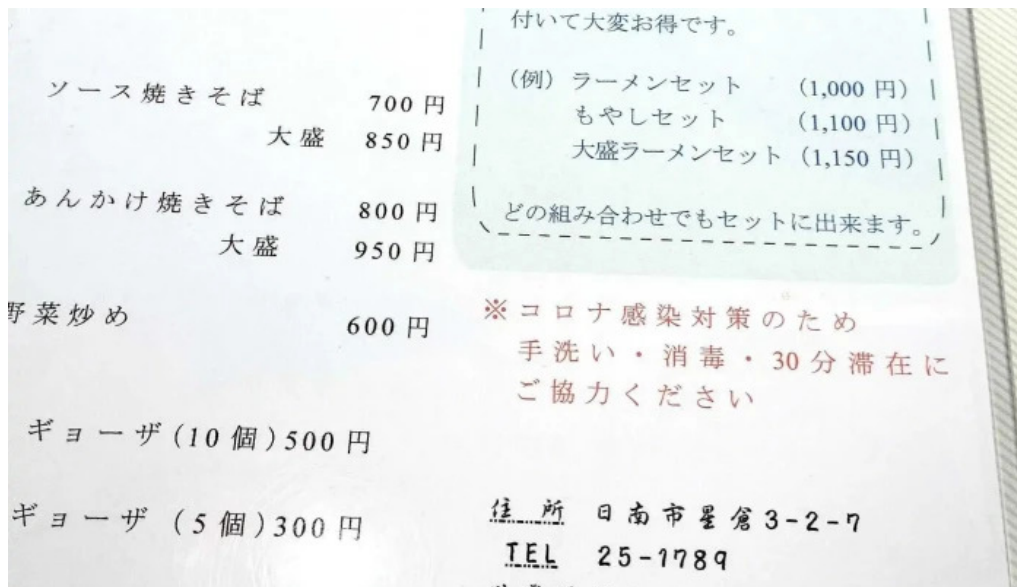 ソース焼きそば 700円
大盛 850円
あんかけ焼きそば 800円
大盛 950円
野菜炒め 600円
ギョーザ(10個)500円
ギョーザ(5個)300円
付いて大変お得です。
(例) ラーメンセット (1,000円)
もやしセット (1,100円)
大盛ラーメンセット (1,150円)
どの組み合わせでもセットに出来ます。
※コロナ感染対策のため
手洗い・消毒・30分滞在に
ご協力ください
住所 日南市星倉3-2-7
TEL 25-1789